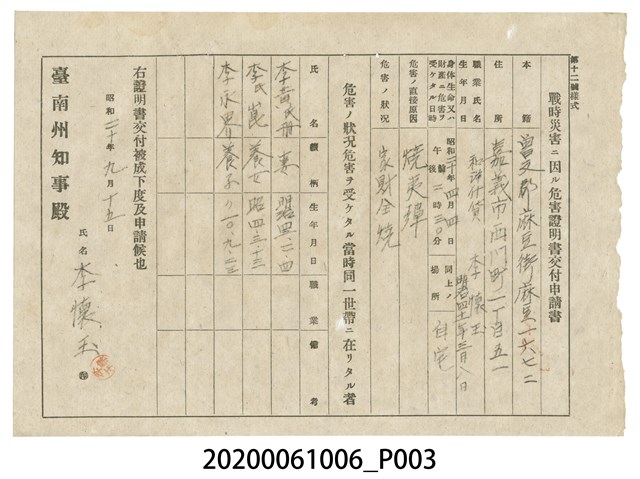 第十二號樣式
戰時災害ニ因ル危害證明書交付申請書
本籍 曾文郡麻豆街麻豆一六七二
住所 嘉義市西門町一丁目五一
職業氏名 和洋什貨 李懷玉
生年月日 明治四十年三月八日
身体生命又ハ財產ニ危害ヲ受ケタル日時 昭和二十年四月四日 午前後二時三〇分 同上ノ場所 自宅
危害ノ直接原因 燒夷彈
危害ノ狀況 家財全燒
危害ノ狀況危害ヲ受ケタル當時同一世帶ニ在リタル者
氏名 續柄 生年月日 職業 備考
李黃氏册 妻 明四一、二、四
李氏嵩 養女 昭四、三、十三
李永界 養子 〃一〇、九、二三
右證明書交付被成下度及申請候也
昭和二十年九月十五日
氏名 李懷玉
臺南州知事殿
20200061006_P003